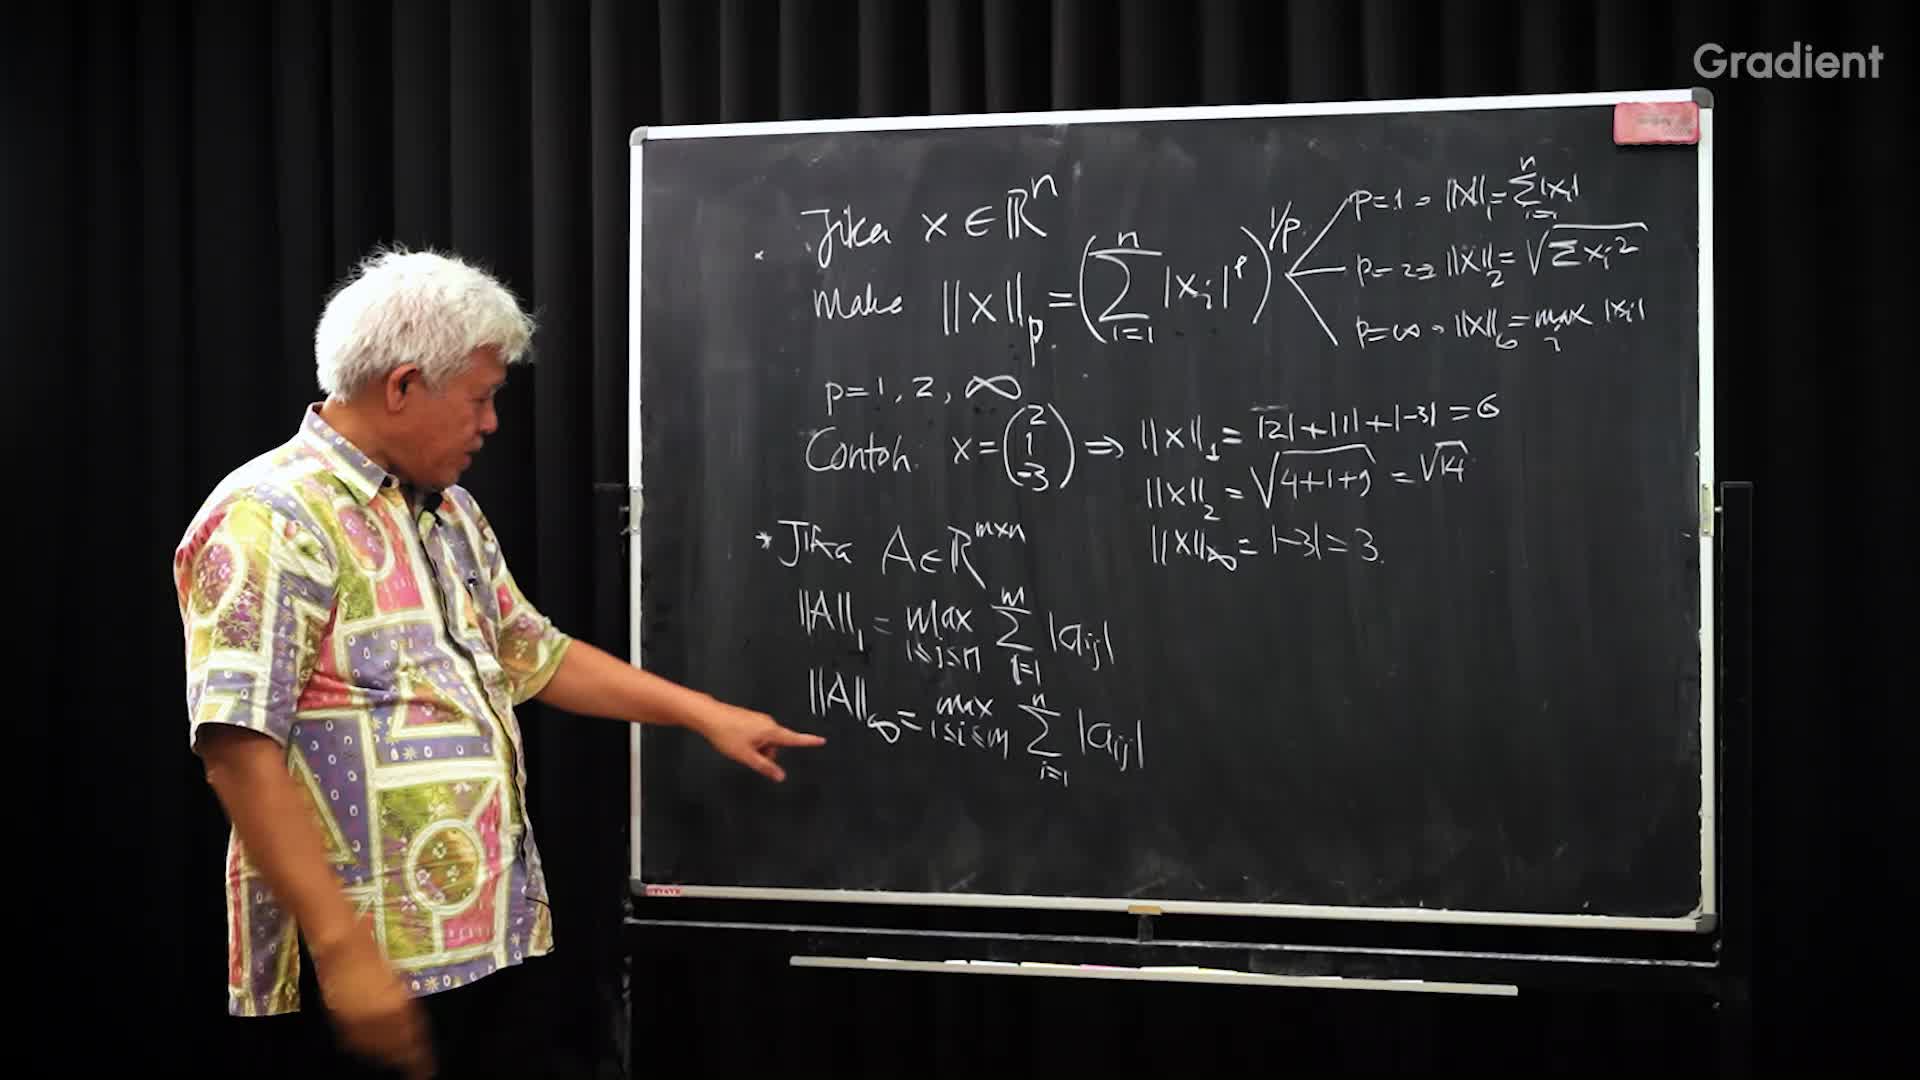 Gradient
Jika x ∈ ℝⁿ
Maka ||x||_p = (∑_{i=1}^{n} |x_i|^p)^{1/p}
p=1 → ||x||_1 = ∑_{i=1}^{n} |x_i|
p=2 → ||x||_2 = √(∑ x_i²)
p=∞ → ||x||_∞ = max_i |x_i|
p=1, 2, ∞
Contoh x = (2 1 -3) ⇒ ||x||_1 = |2|+|1|+|-3| = 6
||x||_2 = √(4+1+9) = √14
||x||_∞ = |-3| = 3.
* Jika A ∈ ℝ^{m×n}
||A||_1 = max_{1≤j≤n} ∑_{i=1}^{m} |a_{ij}|
||A||_∞ = max_{1≤i≤m} ∑_{i=1}^{n} |a_{ij}|